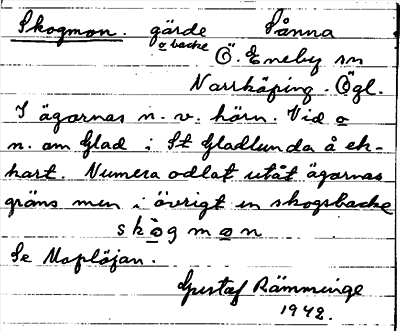 Skogmon. gärde Sånna
o backe
Ö. Eneby sn
Norrköping. Ögl.
I ägornas n. v. hörn. Vid o
n. om Glad i St Gladlunda å ek-
kart. Numera odlat utåt ägornas
gräns men i övrigt en skogsbacke
skògmon
Se Moplöjan.
Gustaf Rämminge
1942.